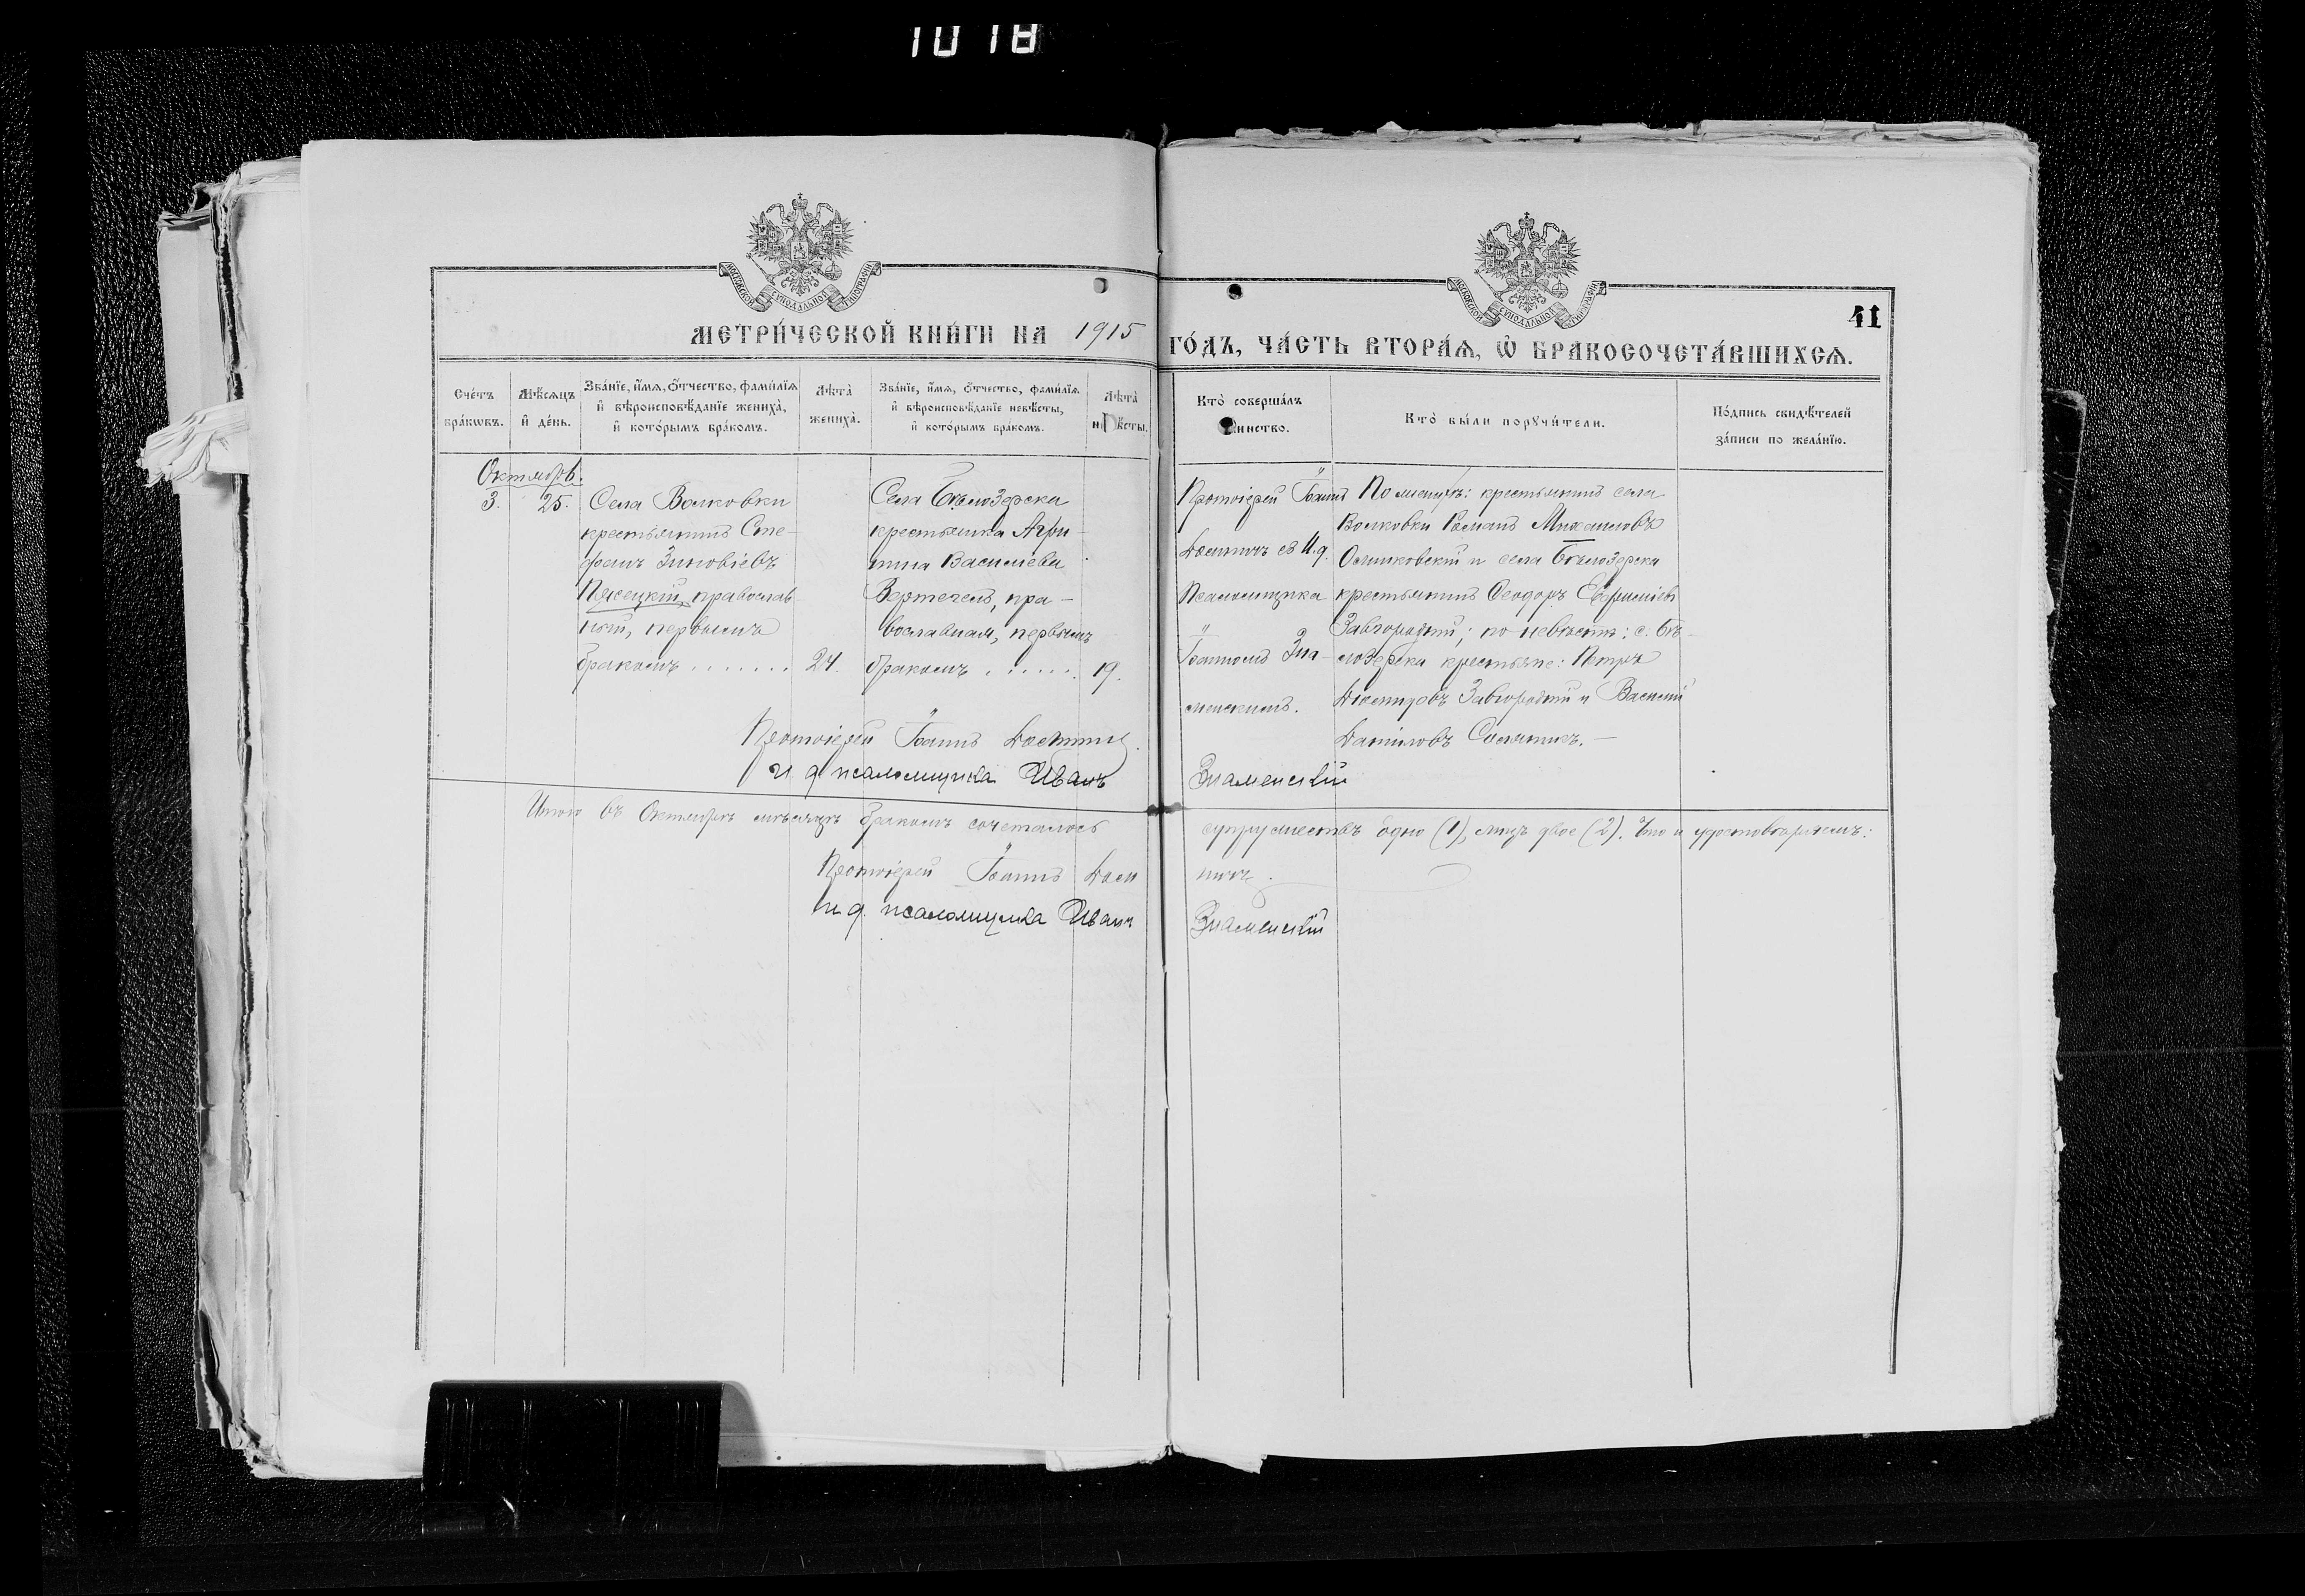 1018
МОСКОВСКОЙ СѴНОДАЛЬНОЙ ТИПОГРАФІИ
МОСКОВСКОЙ СѴНОДАЛЬНОЙ ТИПОГРАФІИ
41
МЕТРИ́ЧЕСКОЙ КНИ́ГИ НА 1915 ГО́ДЪ, ЧА́СТЬ ВТОРА́Ѧ, Ѡ҆ БРАКОСОЧЕТА́ВШИХСѦ.
Сче́тъ
бра́кѡвъ.
Мѣ́сѧцъ
и҆ де́нь.
Зва́нїе, и҆́мѧ, ѻ҆́тчество, фами́лїѧ
и҆ вѣроисповѣ́данїе жениха̀,
и҆ кото́рымъ бра́комъ.
Лѣта̀
жениха̀.
Зва́нїе, и҆́мѧ, ѻ҆́тчество, фами́лїѧ
и҆ вѣроисповѣ́данїе невѣ́сты,
и҆ кото́рымъ бра́комъ.
Лѣта̀
невѣ́сты.
Кто̀ соверша́лъ
таинство.
Кто̀ бы́ли порꙋчи́тели.
По́дпись свидѣ́телей
за́писи по жела́нїю.
Октябрь.
3. 25.
Села Волковки
крестьянинъ Сте-
фанъ Зиновіевъ
Пясецкій, православ
ный, первымъ
бракомъ . . . . . . . 24.
Села Бѣлозерки
крестьянка Агри-
пина Васильева
Вертегелъ, пра-
вославная, первымъ
бракомъ . . . . . . 19.
Протоіерей Іоаннъ
съ И.д.
Псаломщика
Іоанномъ Зна-
менскимъ.
По женихѣ: крестьянинъ села
Волковки Романъ Михаиловъ
и села Бѣлозерки
крестьянинъ Ѳеодоръ
Завгородній; по невѣстѣ: с. Бѣ-
лозерки крестьяне: Петръ
Завгородній и Василій
Даніиловъ
Протоіерей Іоаннъ
и д псаломщика Иванъ Знаменскій
Итого въ Октябрѣ мѣсяцѣ бракомъ сочеталось супружествъ одно (1), лицъ двое (2). Что и удостовѣряемъ:
Протоіерей Іоаннъ
и д. псаломщика Иванъ Знаменскій